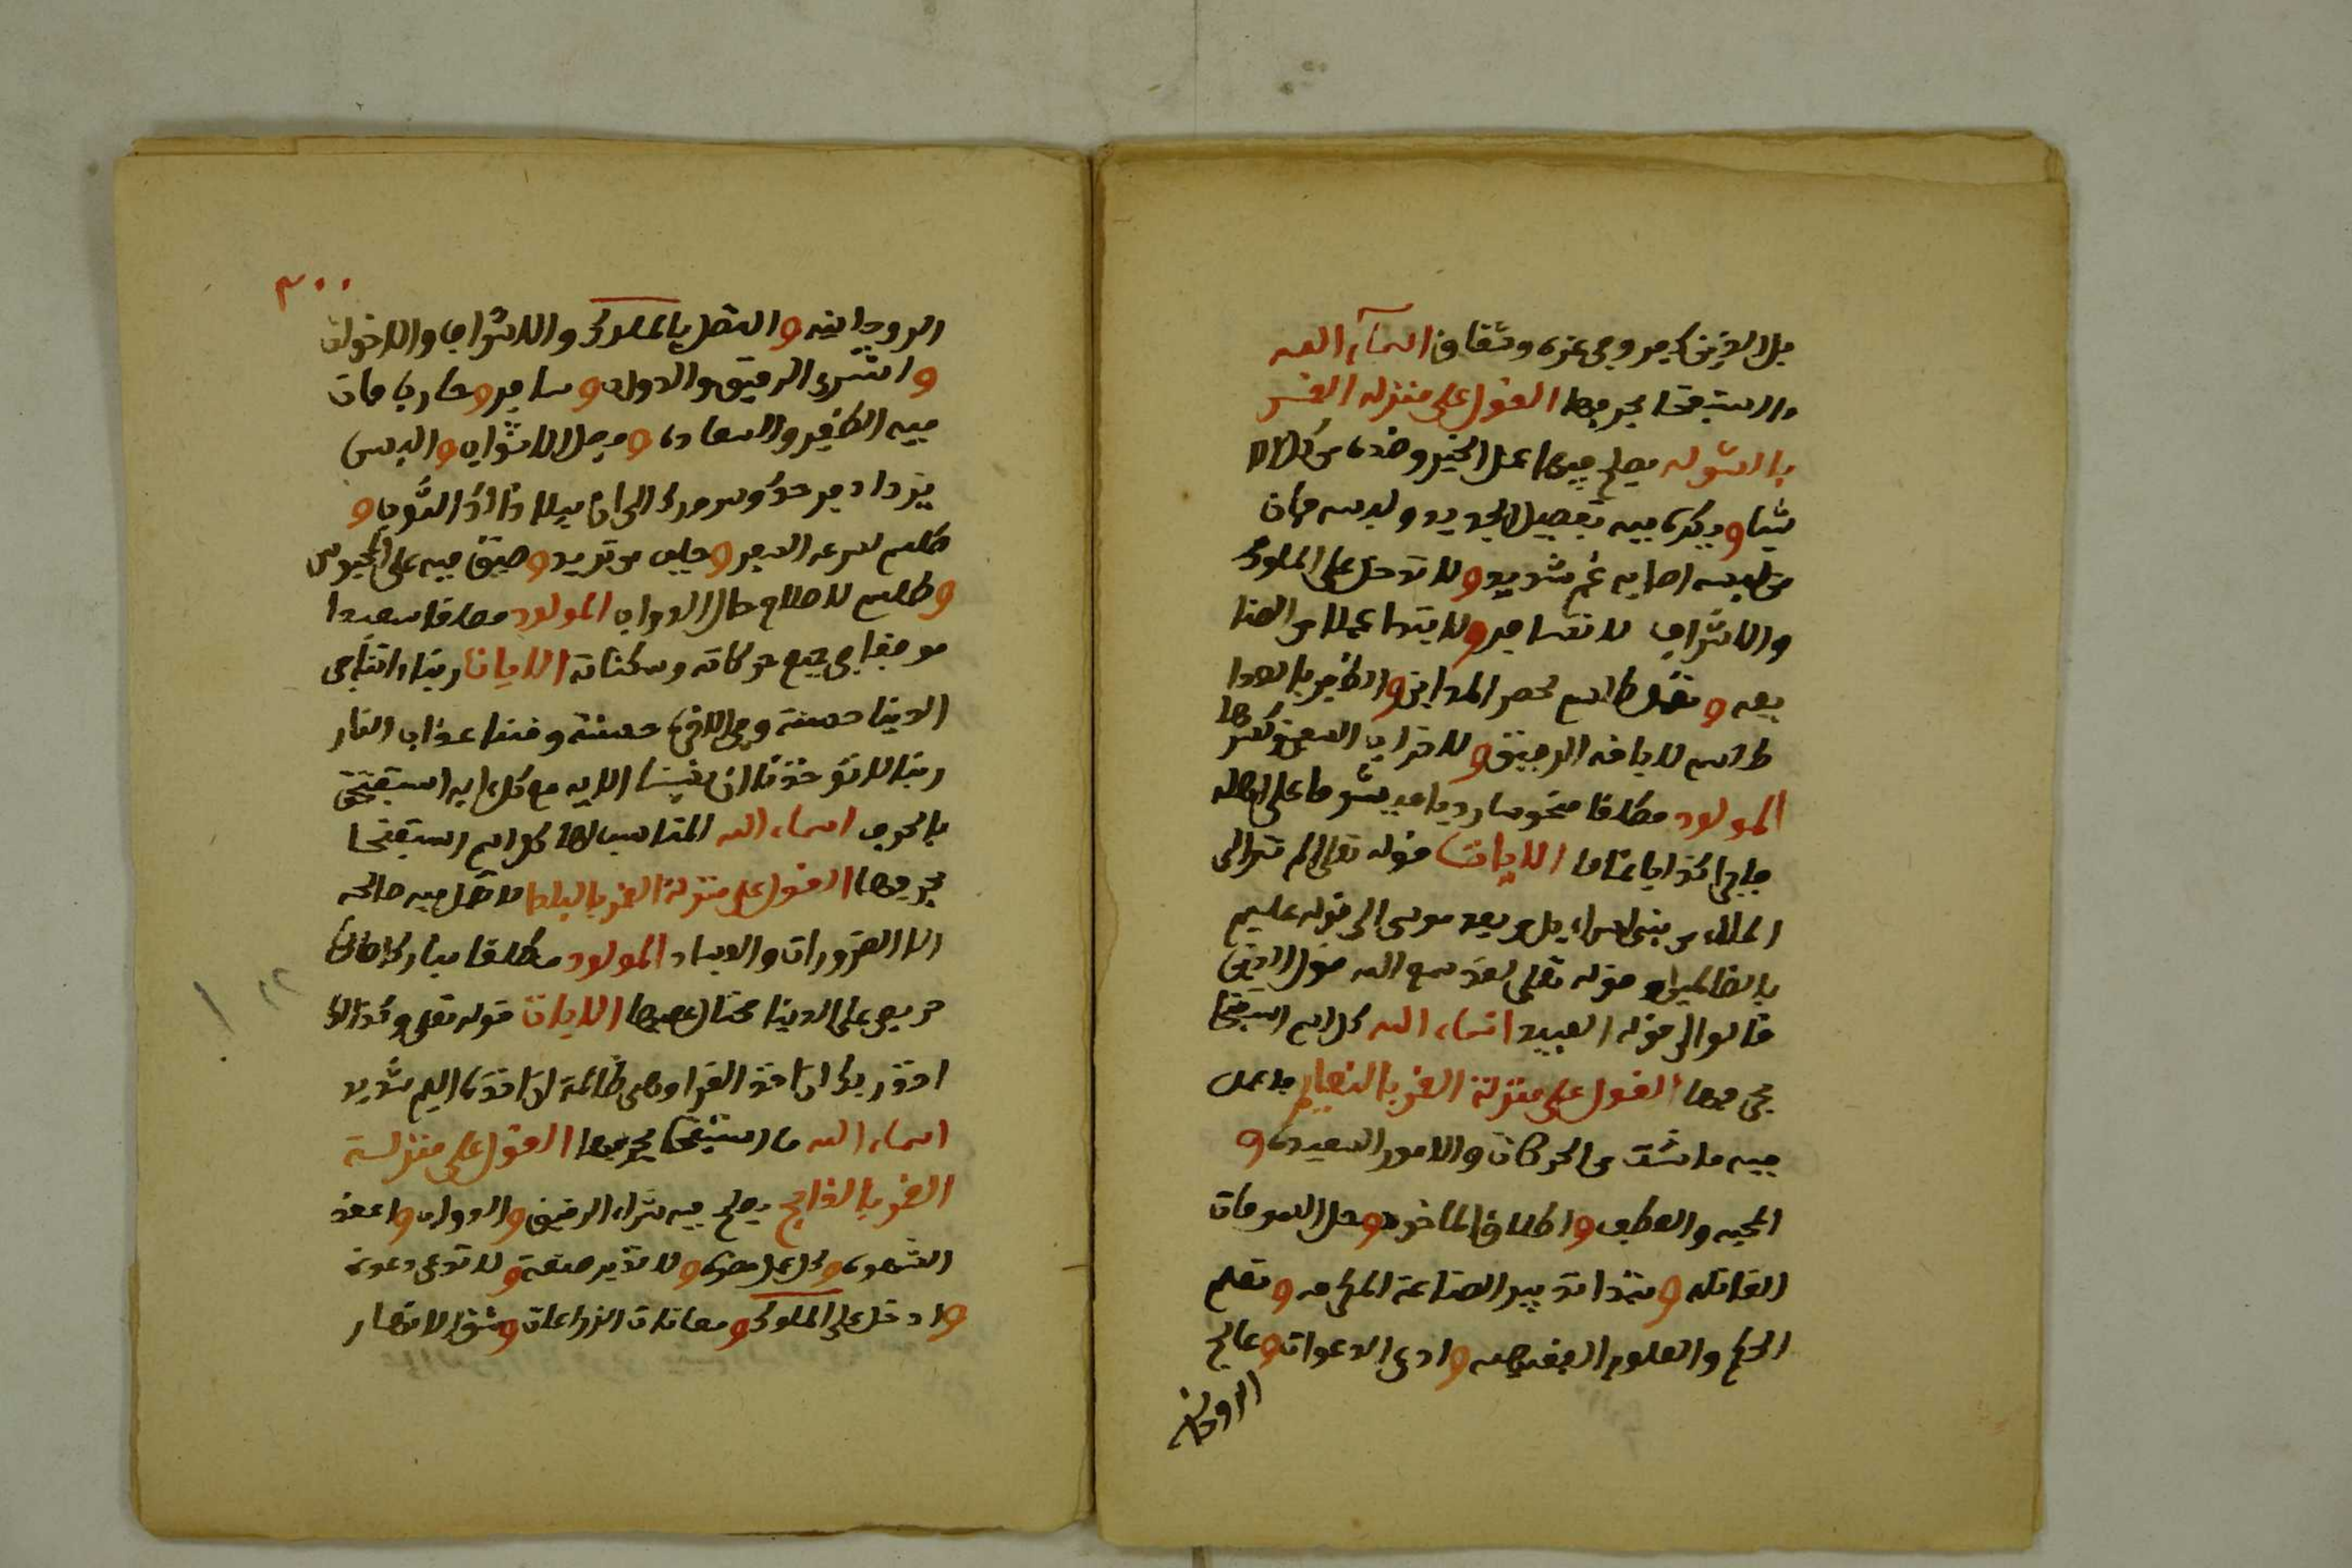 بل الذين كفروا في عزة وشقاق اسماء الله
ما استفتحا بحرفها القول على منزلة القمر
بالشوله يصلح فيها عمل الخير وضده من كلا
شيا و يكره فيه تفصيل الجديد ولبسه فان
من لبسه اصابه غم شديد و لا تدخل على الملوك
والاشراف لا تسافر و لا يتدا عملا من الصنا
يعه و تعمل طلسم لحصر المداين و الظفر بالاعدا
طلسم لاباقه الرقيق و لاخراب السفن وكسرها
المولود مطلقا منحوسا رديا ميشوما على اهله
فاجرا كذابا نماما الايات قوله تعالى الم تر الى
الملاء من بني اسراءيل من بعد موسى الى قوله عليم
بالظالمين و قوله تعلى لقد سمع الله قول الذين
قالوا الى قوله العبيد اسماء الله كل اسم استفتحا
بحرفها القول على منزلة القمر بالنعايم فاعمل
فيه ما شئت من الحركات والامور السعيده و
المحبه والعطف و اطلاق الماخوذ و حل السمومات
القاتله و يبتدا تدبير الصناعة المكرمه و تعلم
الحكم والعلوم الفيضيه و ادع الدعوات و عالج
الروحانيه
٣٠٠
الروحانيه و اتصل بالملوك والاشراف والاخوان
و اشتري الرقيق والدواب و سافر و حارب فان
فيه الظفر والسعاده و فصل الاثواب و البس
يزداد فرحك وسرورك الى ان يبلا ذالك الثوب و
طلسم لسرعه السفر و جلب من تريد و ضيق فيه على المحبوس
و طلسم لاصلاح حال الدواب المولود مطلقا سعيدا
موفقا في جميع حركاته وسكناته الايات ربنا ءاتنا في
الدينا حسنة وفي الاخرة حسنة وقنا عذاب النار
ربنا لا تؤخذنا ان نسينا الايه مع كل ايه استفتحت
بالحرف اسماء الله المناسب لها كل اسم استفتحا
بحرفها القول على منزلة القمر بالبلدا لا تعمل فيه صالحه
الا الضرورات والفساد المولود مطلقا مباركا
حريص على الدينا محتال عليها الايات قوله تعلى وكذالك
اخذ ربك اذا اخذ القرا وهي ظالمة ان اخذه اليم شديد
اسماء الله ما استفتحا بحرفها القول على منزلة
القمر بالذابح يصلح فيه شراء الرقيق و الدواب و اعقد
الشهوه و كل عمل مضره و لا تدبر صنعة و لا تدعي دعوة
و ادخل على الملوك و معانات الزراعات و شق الانهار